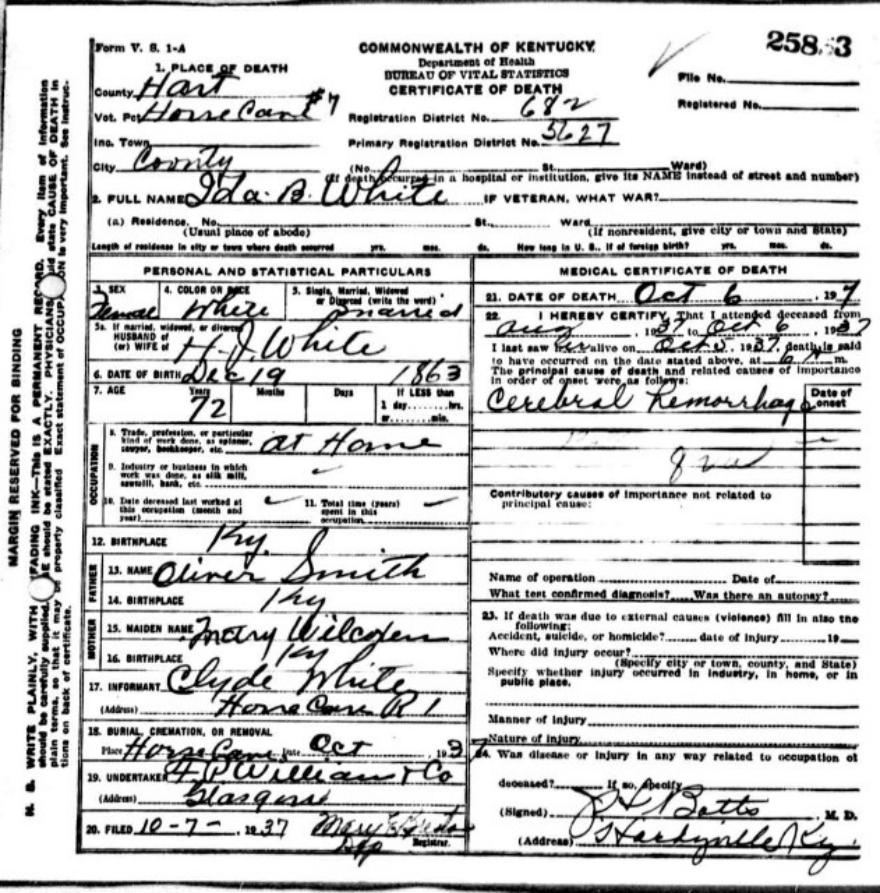 Form V. S. 1-A
COMMONWEALTH OF KENTUCKY
Department of Health
BUREAU OF VITAL STATISTICS
CERTIFICATE OF DEATH
File No.
Registered No.
1. PLACE OF DEATH
County Hart
Vot. Pct Horse Cave #7
Registration District No. 682
Inc. Town
Primary Registration District No. 5627
City County
(No. St. Ward)
(If death occurred in a hospital or institution, give its NAME instead of street and number)
2. FULL NAME Ida B. White IF VETERAN, WHAT WAR?
(a) Residence, No. St., Ward
(Usual place of abode) (If nonresident, give city or town and State)
Length of residence in city or town where death occurred yrs. mos. ds. How long in U. S., if of foreign birth? yrs. mos. ds.
PERSONAL AND STATISTICAL PARTICULARS
3. SEX 4. COLOR OR RACE 5. Single, Married, Widowed
or Divorced (write the word)
Female White Married
5a. If married, widowed, or divorced
HUSBAND of
(or) WIFE of H. J. White
6. DATE OF BIRTH Dec 19 1863
7. AGE Years Months Days If LESS than
1 day hrs.
or min.
72
OCCUPATION
8. Trade, profession, or particular
kind of work done, as spinner,
sawyer, bookkeeper, etc. at Home
9. Industry or business in which
work was done, as silk mill,
sawmill, bank, etc.
10. Date deceased last worked at
this occupation (month and
year)
11. Total time (years)
spent in this
occupation
12. BIRTHPLACE Ky.
FATHER
13. NAME Oliver Smith
14. BIRTHPLACE Ky
MOTHER
15. MAIDEN NAME Mary
16. BIRTHPLACE Ky
17. INFORMANT Clyde White
(Address) Horse Cave R 1
18. BURIAL, CREMATION, OR REMOVAL
Place Horse Cave Date Oct 1937
19. UNDERTAKER & Co
(Address) Glasgow
20. FILED 10-7-, 1937 Mary
Registrar.
MEDICAL CERTIFICATE OF DEATH
21. DATE OF DEATH Oct 6, 197
22. I HEREBY CERTIFY, That I attended deceased from
Aug, 1937 to Oct 6, 1937
I last saw alive on Oct, 1937, death is said
to have occurred on the date stated above, at m.
The principal cause of death and related causes of importance
in order of onset were as follows:
Date of
onset
Cerebral Hemorrhage
Contributory causes of importance not related to
principal cause:
Name of operation Date of
What test confirmed diagnosis? Was there an autopsy?
23. If death was due to external causes (violence) fill in also the
following:
Accident, suicide, or homicide? date of injury 19
Where did injury occur?
(Specify city or town, county, and State)
Specify whether injury occurred in industry, in home, or in
public place.
Manner of injury
Nature of injury
24. Was disease or injury in any way related to occupation of
deceased? If so, specify
(Signed) Botts, M. D.
(Address) Hardyville Ky
MARGIN RESERVED FOR BINDING
N. B. WRITE PLAINLY, WITH FADING INK—This IS A PERMANENT RECORD. Every item of information
should be carefully supplied. should be stated EXACTLY. PHYSICIANS state CAUSE OF DEATH in
plain terms, so that it may be properly classified. Exact statement of OCCUPATION is very important. See instruc-
tions on back of certificate.